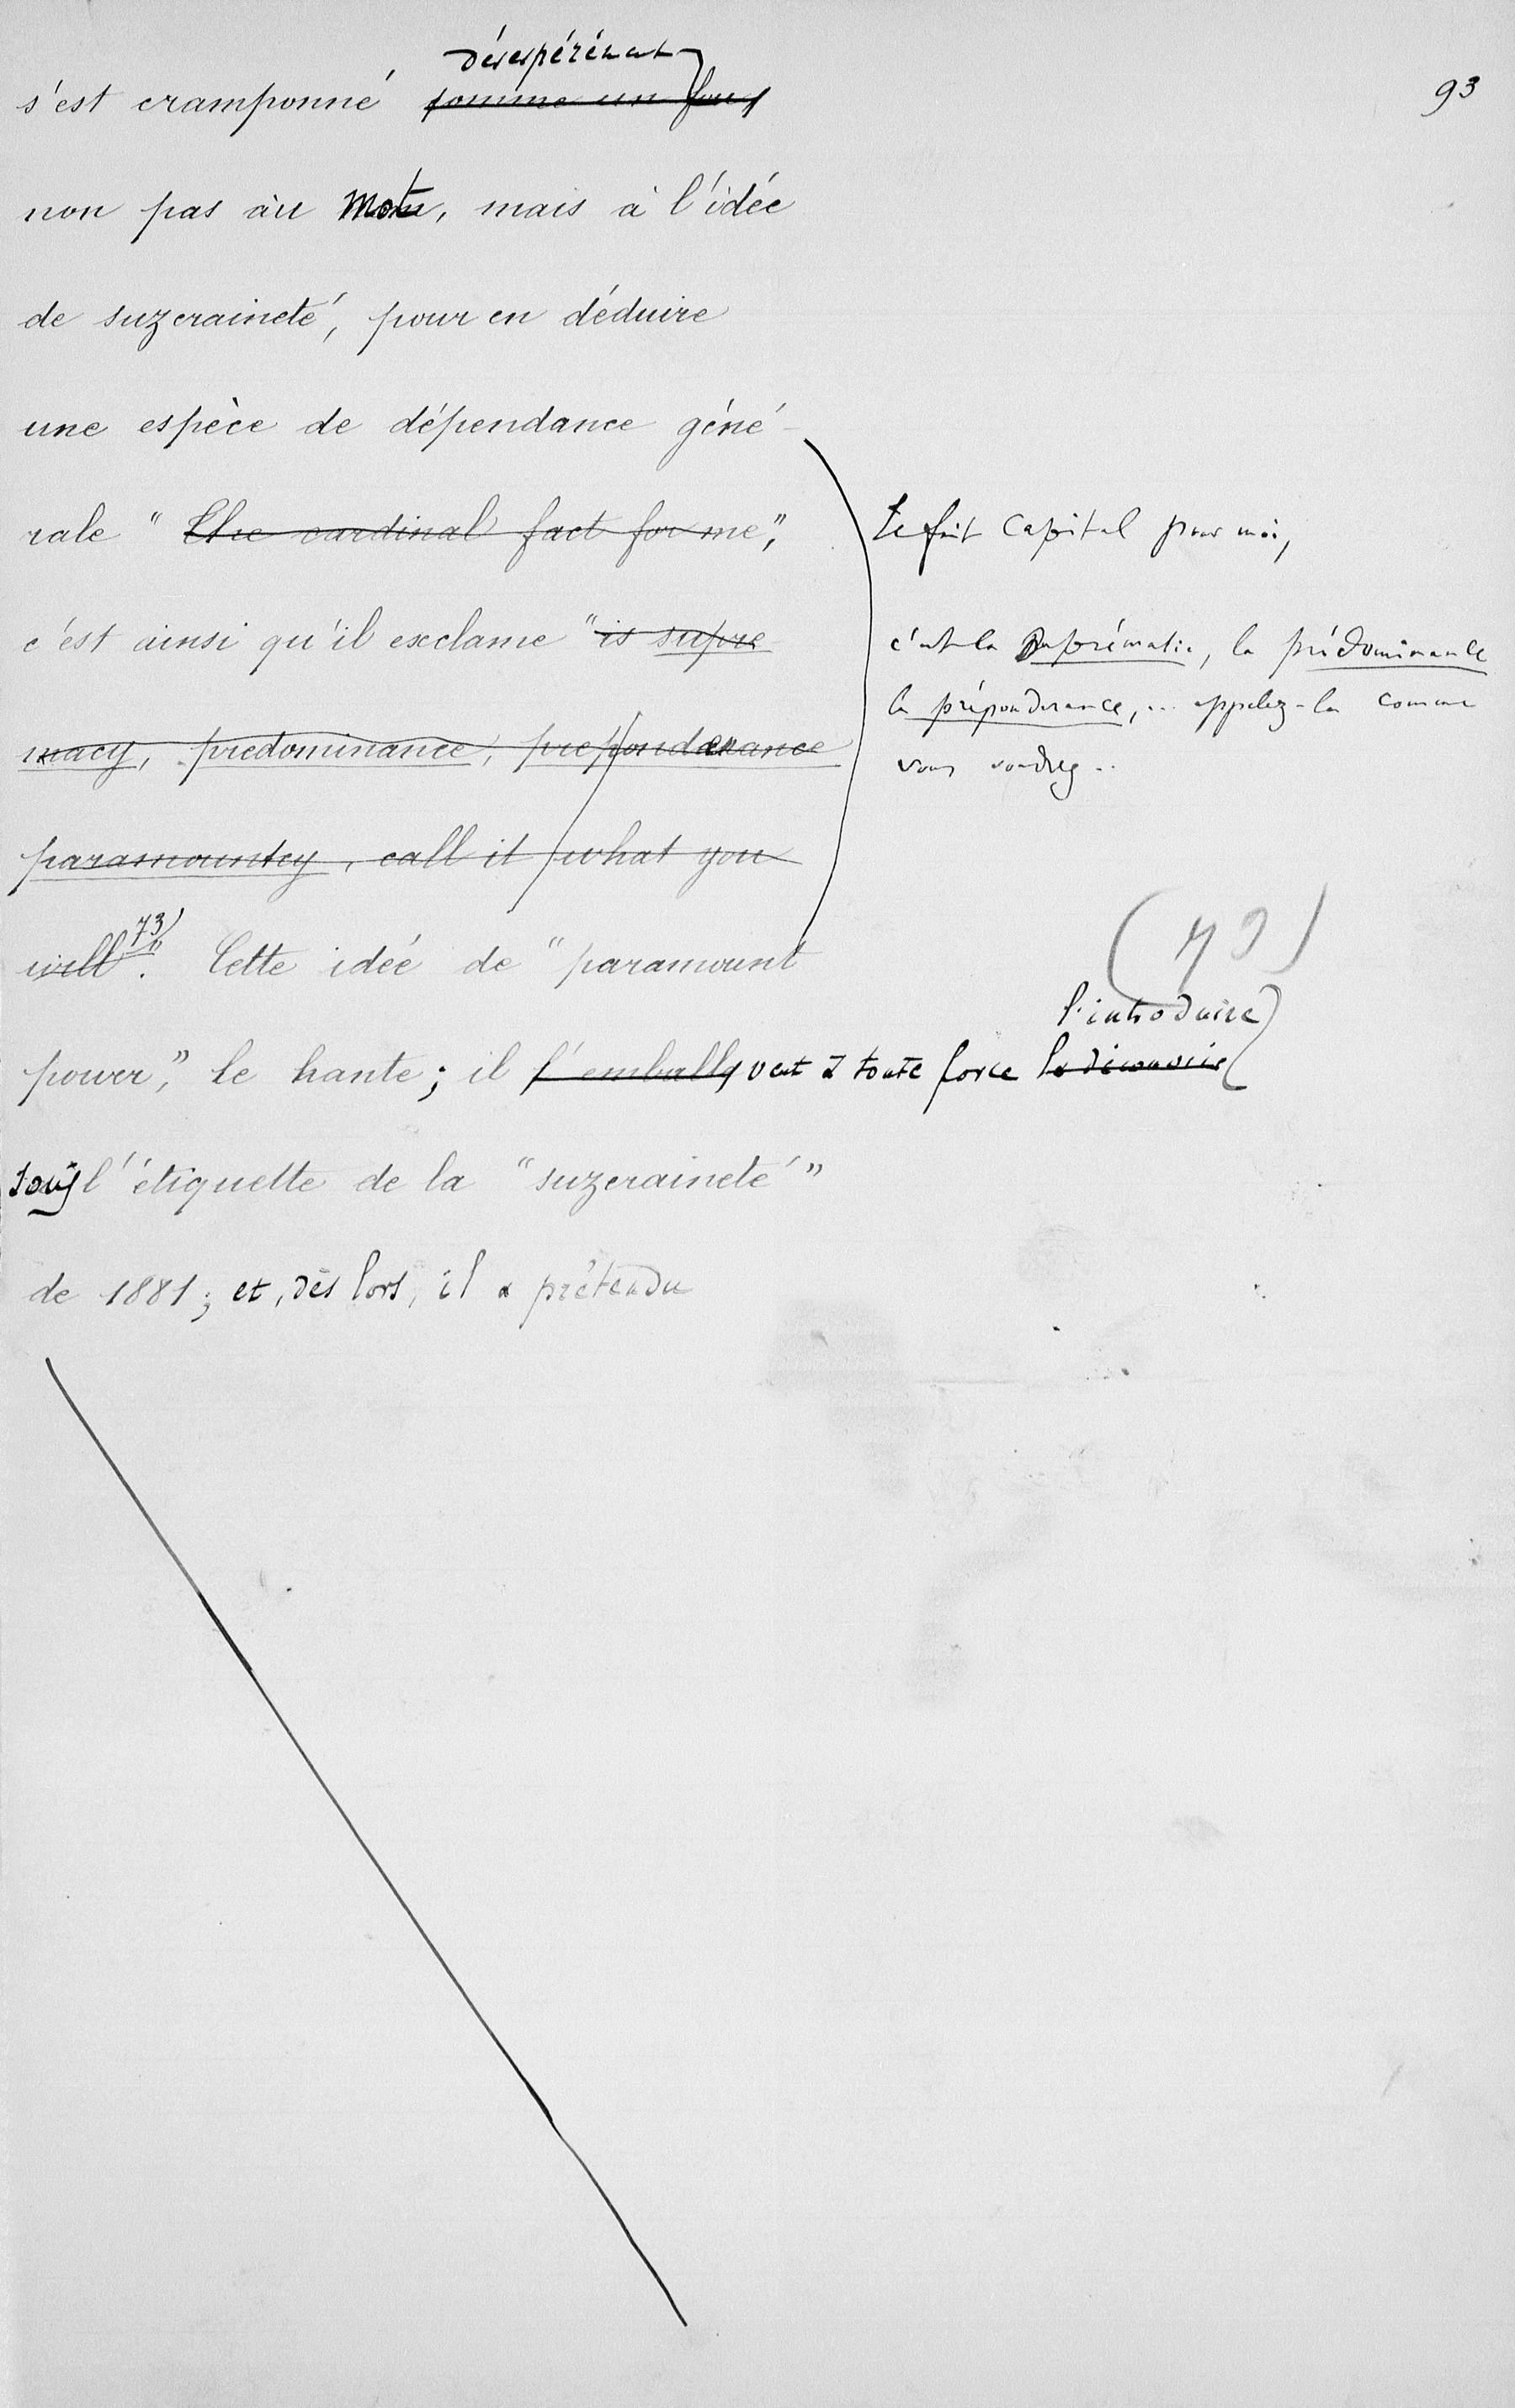 93
désespérément
s'est cramponné comme un fou
non pas au mot, mais à l'idée
de suzeraineté, pour en déduire
une espèce de dépendance géné-
rale " The cardinal fact for me,"
Le fait capital pour moi,
c'est ainsi qu'il exclame "is supre
c'est la suprématie, la prédominance
la prépondérance, ... appelez-la comme
macy, predominance, preponderance
vous voudrez..
paramountcy, call it what you
will" 73). Cette idée de "paramount
(73)
l'introduire
power," le hante; il s'emballe veut à toute force la découvrir
sous l'étiquette de la "suzeraineté"
de 1881; et, dès lors, il a prétendu